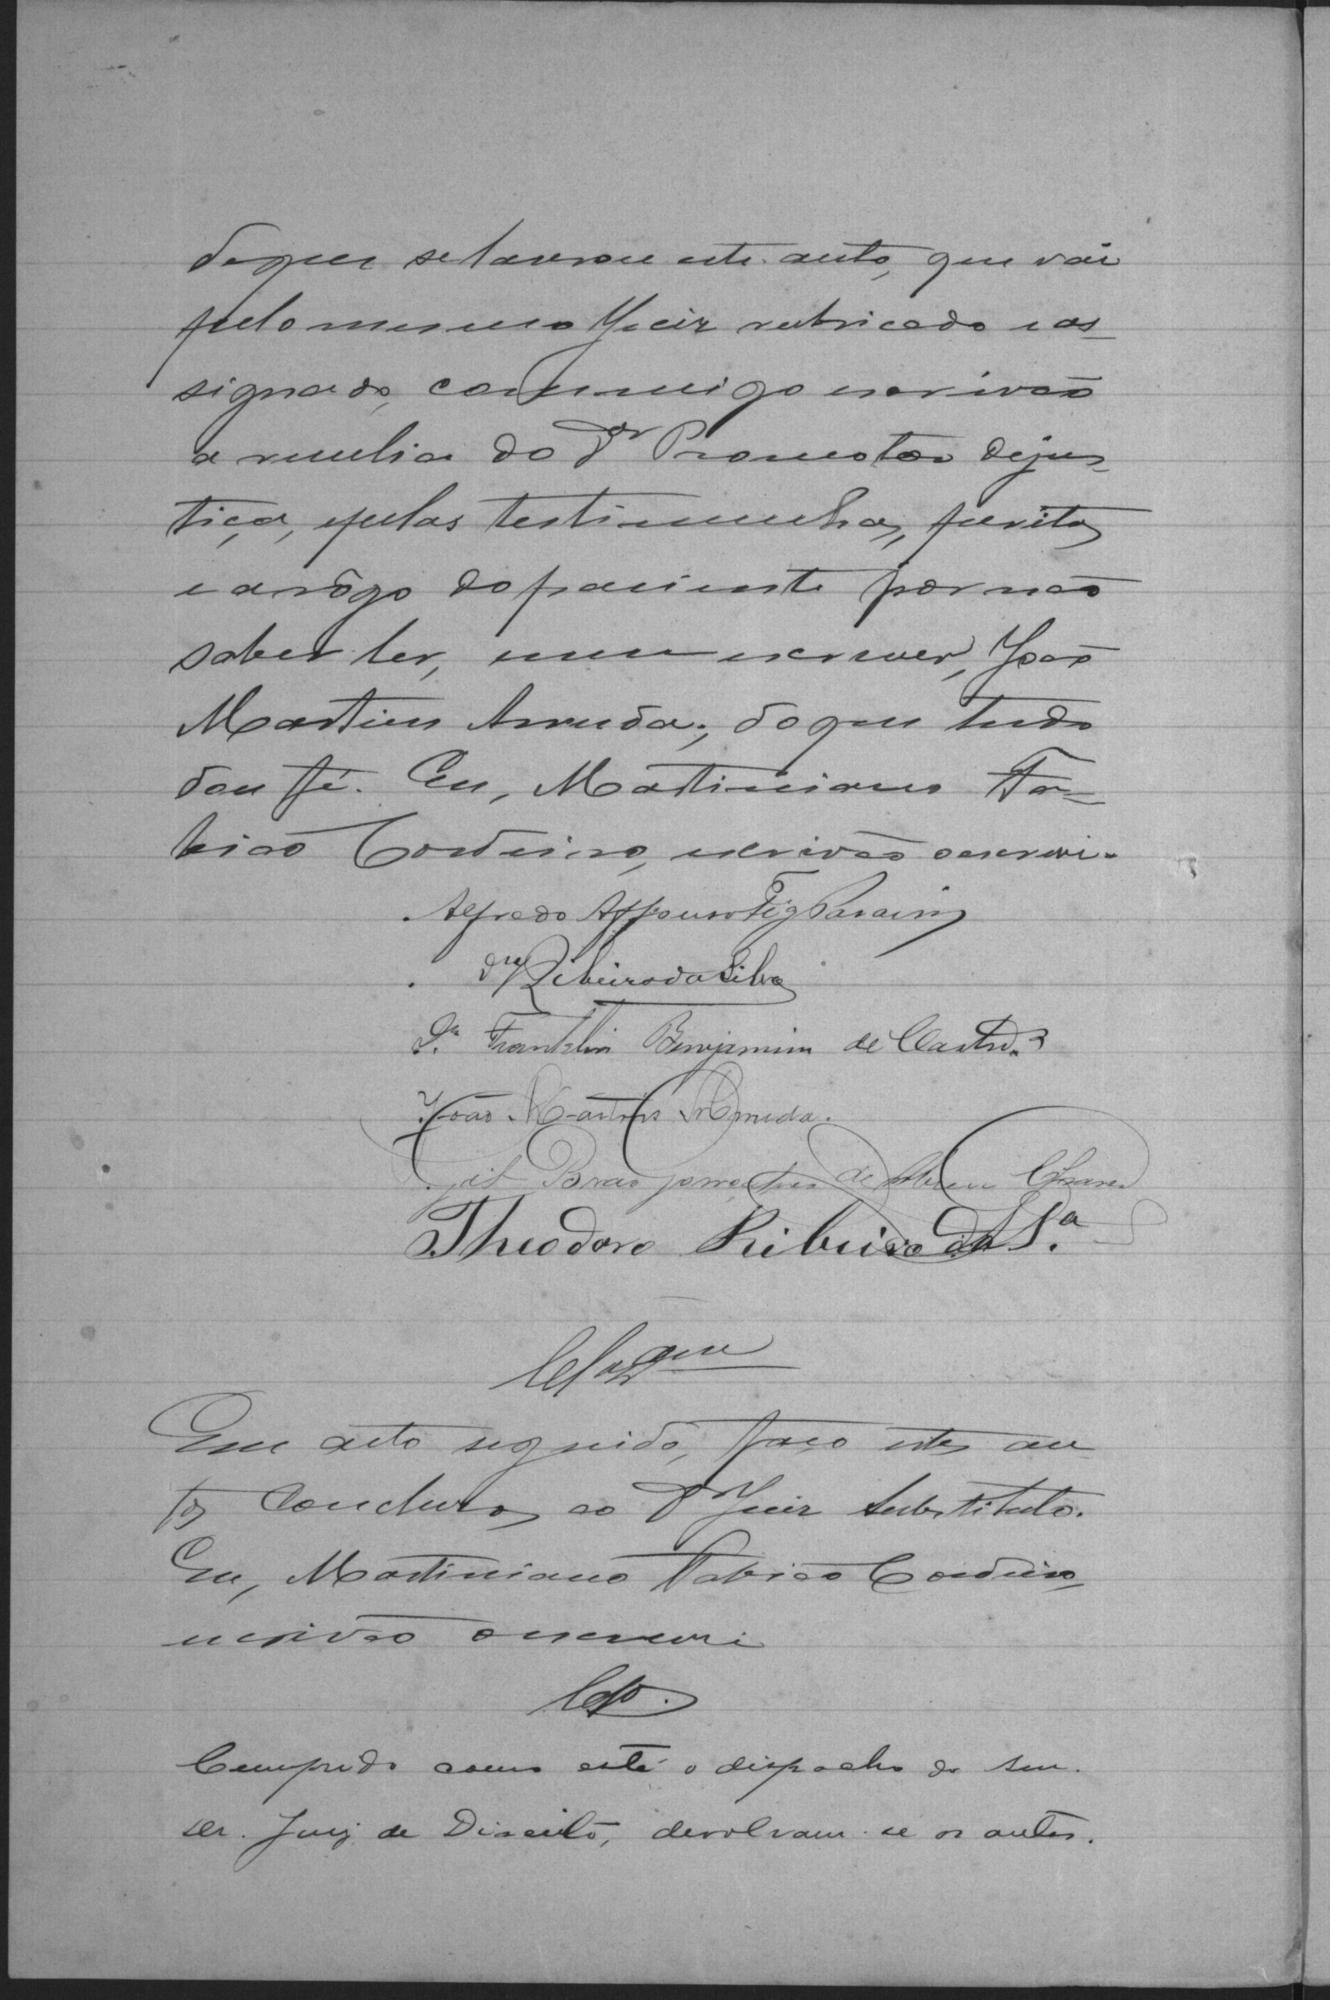 de que se lavrou este auto, que vai
pelo mesmo Juiz rubricado e as-
signado, commigo escrivão
a rublica do Dr Promotor de jus-
tiça, e pelas testimunhas, peritos
e a rôgo do paciente por não
saber ler, nem escrever, João
Martins Arruda; do que tudo
dou fé. Eu, Martiniano Fa-
bião Cordeiro, escrivão o escrevi.
Alfredo Affonso
Dr Ribeiro da Silva
Dr. Franklin Benjamim de Castro.
João Martins Arruda.
Gil Braz de Abreu Chaves
Theodoro Ribeiro da Sa
Clsam
Em acto seguido, faço estes au-
tos Conclusos ao Dr Juiz Substituto.
Eu, Martiniano Fabião Cordeiro,
escrivão o escrevi
Clso.
Cumprido como está o dispacho do Sen.
Dr. Juiz de Direito, devolvam-se os autos.